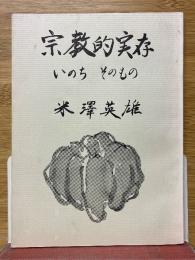 宗教的実存
いのち そのもの
米澤英雄